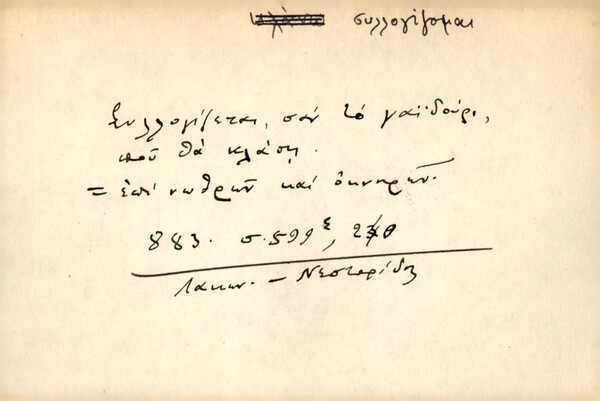 συλλογίζομαι
Συλλογίζεται, σάν τό γαϊδούρι,
πού θά κλάση.
= ἐπί νωθρῶν καί ὀκνηρῶν.
883. σ. 599
Λακων. - Νεστορίδης